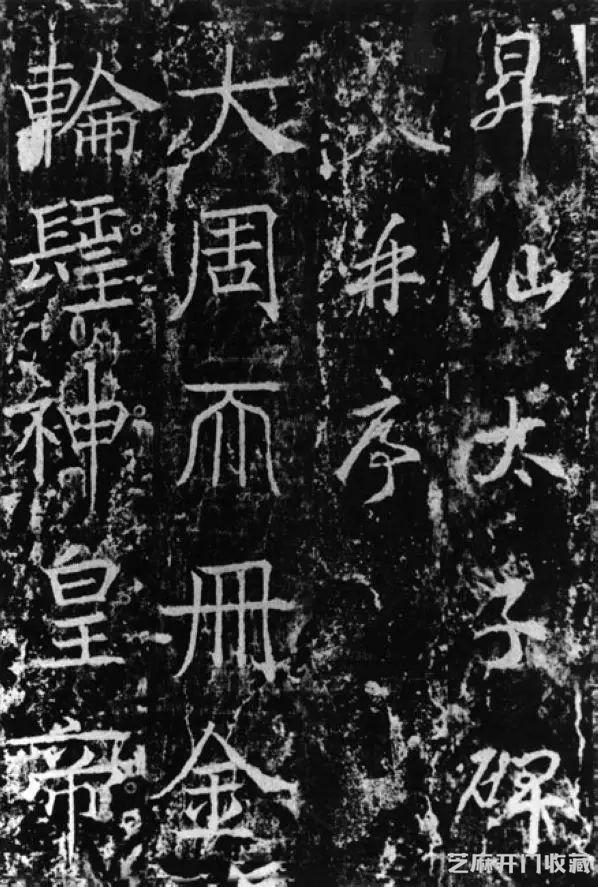 昇仙太子碑
并序
大周𠀑冊金
輪𨲢神皇帝
芝麻开门收藏